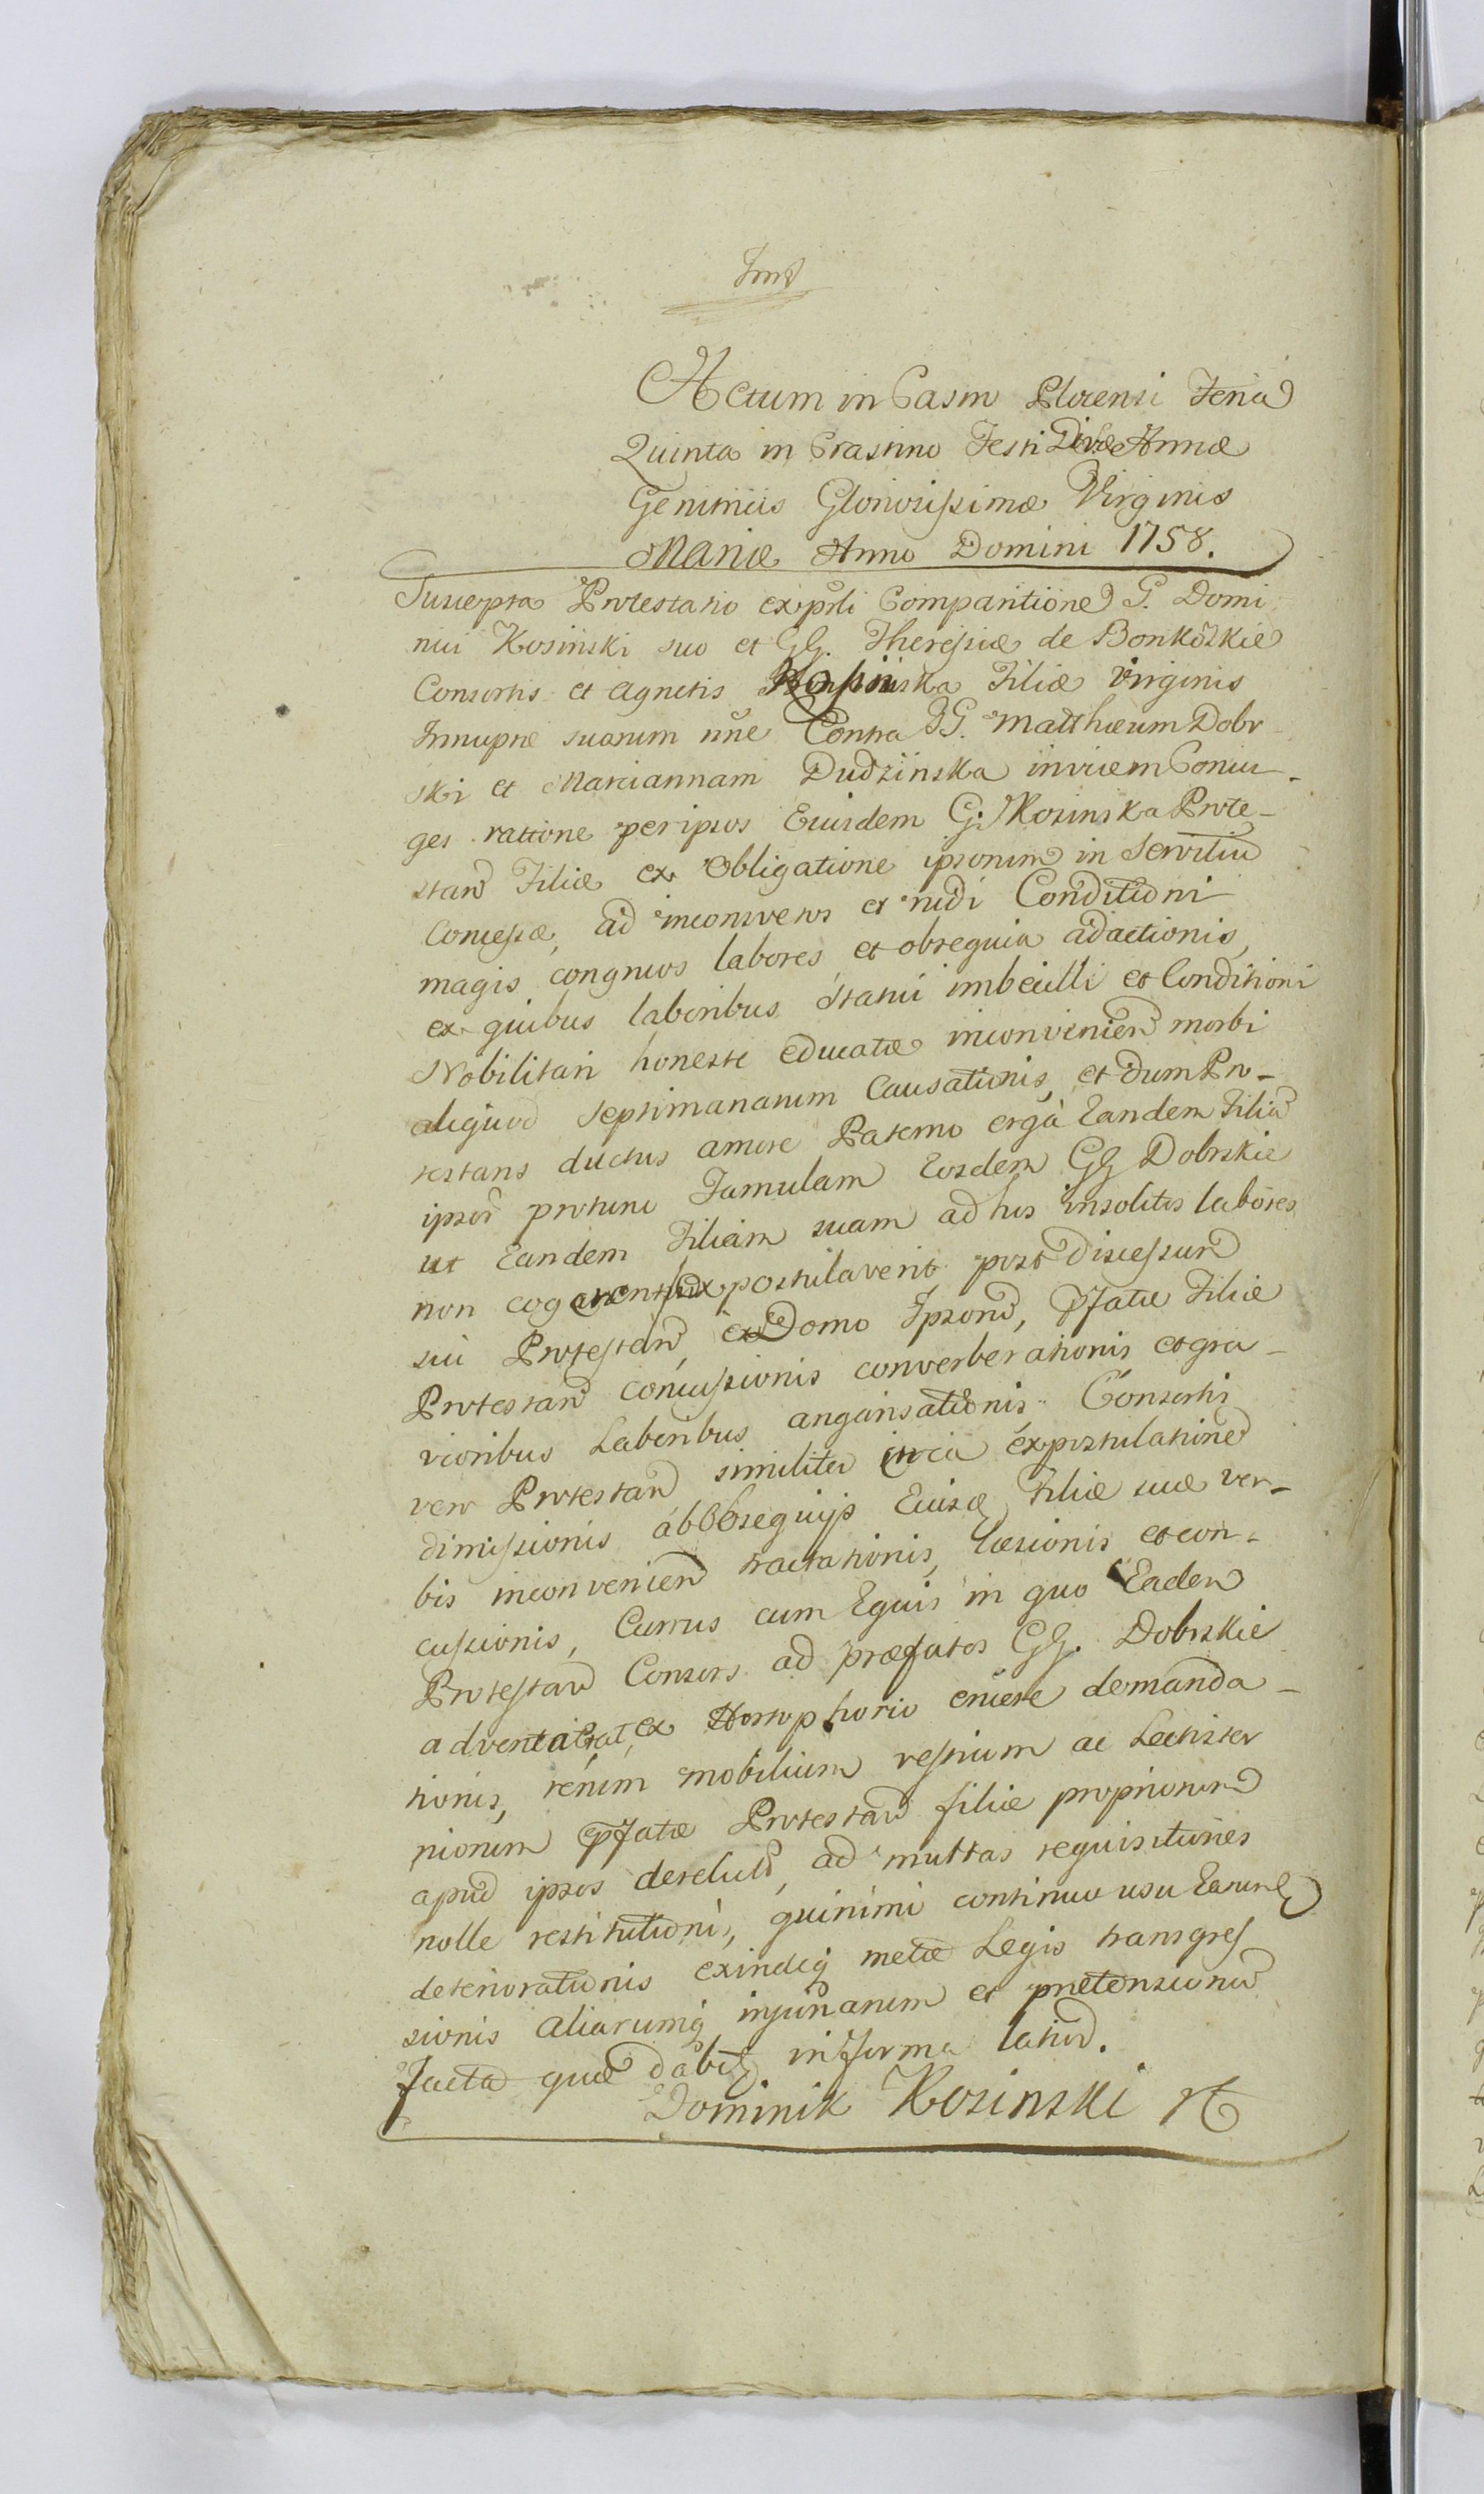 Actum in Castro Plocensi Feria
Quinta in Crastino Festi Divæ Annæ
Genitricis Gloriosissimæ Virginis
Mariæ Anno Domini 1758.
Suscepta Protestatio ex prsti Comparitione G. Domi
nici Kosinski suo et GG. Theresiæ de Bonkoskie
Consortis et Agnetis Kosinska Filiæ Virginis
Innuptæ suarum nne Contra GG. Matthæum Dobr
ski et Mariannam Dudziinska invicem Coniu-
ges ratione per ipsos Eiusdem G. Kosinska Prote-
stan Filiæ ex Obligatione ipsorum in Servitiu
Concessæ, ad inconsvetos et rudi Conditioni
magis congruos labores, et obsequia adactionis,
ex quibus laboribus Statui imbecilli et Conditioni
Nobilitari honeste educatæ inconvenien morbi
aliquod septimanarum Causationis, et dum Pro-
testans ductus amore Paterno erga Eandem Filia
ipsor protunc Famulam Eosdem GG Dobrskie
ut Eandem Filiam suam ad hos insolitos labores
non cogerent expostulaverit post discessum
sui Protestan ex Domo Ipsoru, Pfatæ Filiæ
Protestan concussionis converberationis et gra-
vioribus Laboribus angarisationis Consortis
vero Protestan similiter circa expostulatione
dimissionis ab Obsequijs Eiusd Filiæ suæ ver-
bis inconvenien tractationis, læsionis et con-
cussionis, Currus cum Equis in quo Eadem
Protestan Consors ad præfatos GG. Dobrskie
adventa erat, ex Hortophorio eiicere demanda-
tionis, rerum mobilium vestium ac Lectister
niorum Pfatæ Protestan filiæ propriorum
apud ipsos derelict, ad multas requisitiones
nolle restitutioni, quinimi continuo usu Earund
deteriorationis exindeq metæ Legis transgres
sionis Aliarumq injuriarum et prætensionu
Facta quæ dabit in forma latior.
Dominik Kosinski